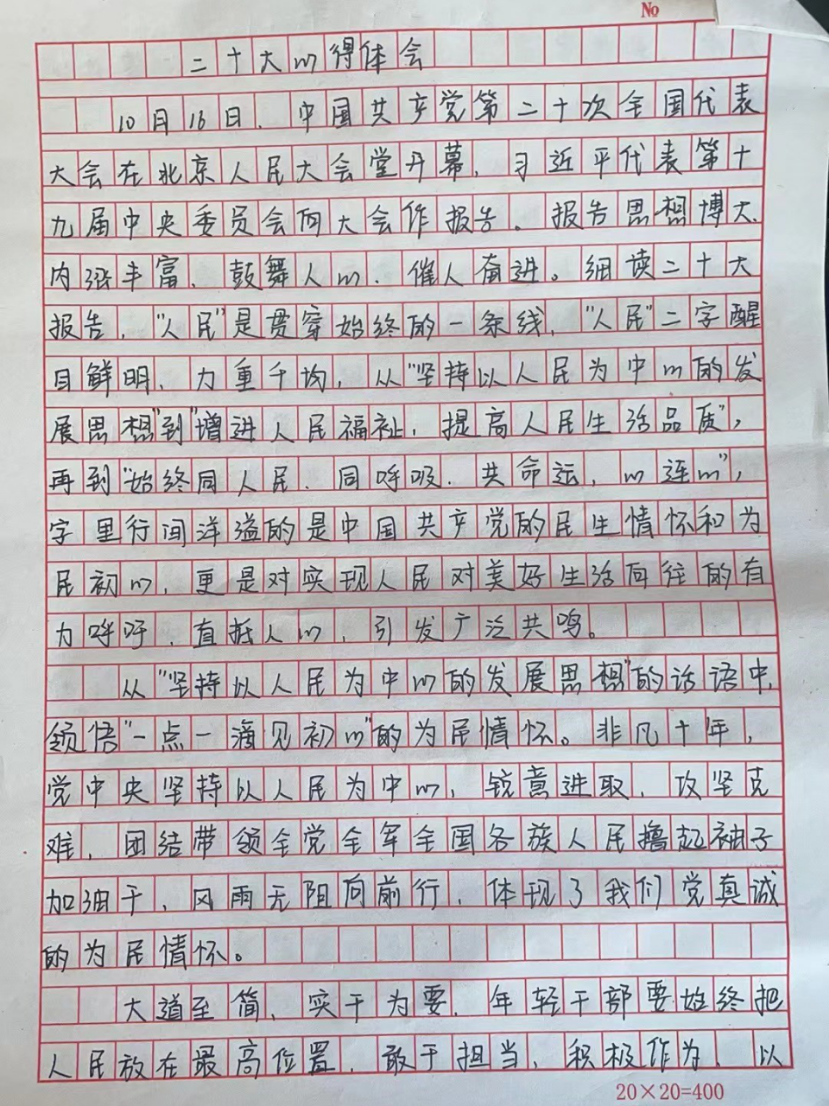 No
二十大心得体会
10月16日，中国共产党第二十次全国代表
大会在北京人民大会堂开幕，习近平代表第十
九届中央委员会向大会作报告。报告思想博大、
内涵丰富、鼓舞人心、催人奋进。细读二十大
报告，“人民”是贯穿始终的一条线，“人民”二字醒
目鲜明、力重千均，从“坚持以人民为中心的发
展思想”到“增进人民福祉，提高人民生活品质”，
再到“始终同人民、同呼吸、共命运、心连心”，
字里行间洋溢的是中国共产党的民生情怀和为
民初心，更是对实现人民对美好生活向往的有
力呼吁，直抵人心，引发广泛共鸣。
从“坚持以人民为中心的发展思想”的话语中，
领悟“一点一滴见初心”的为民情怀。非凡十年，
党中央坚持以人民为中心，锐意进取，攻坚克
难，团结带领全党全军全国各族人民撸起袖子
加油干、风雨无阻向前行，体现了我们党真诚
的为民情怀。
大道至简，实干为要，年轻干部要始终把
人民放在最高位置，敢于担当，积极作为，以
20×20=400